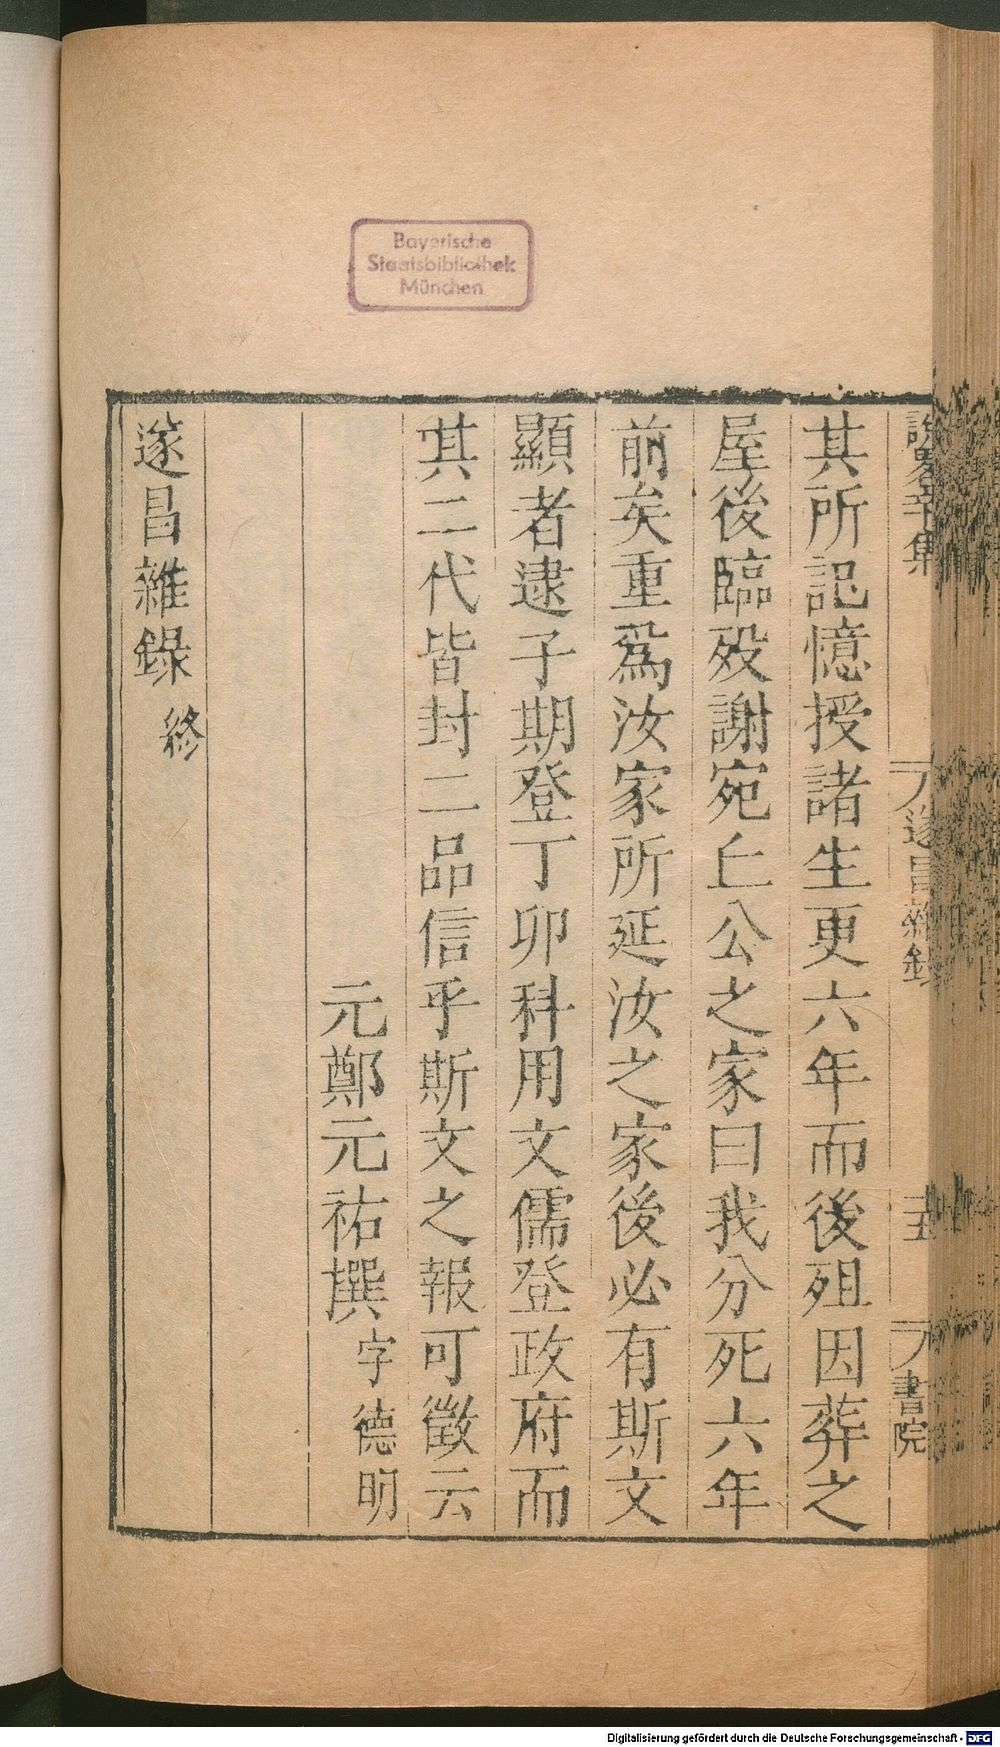 Bayerische
Staatsbibliothek
München
說畧辛集
遂昌雜錄
書院
其所記憶授諸生更六年而後殂因葬之
屋後臨歿謝宛丘公之家曰我分死六年
前矣重爲汝家所延汝之家後必有斯文
顯者逮子期登丁卯科用文儒登政府而
其二代皆封二品信乎斯文之報可徵云
元鄭元祐撰字德明
遂昌雜錄終
Digitalisierung gefördert durch die Deutsche Forschungsgemeinschaft - DFG